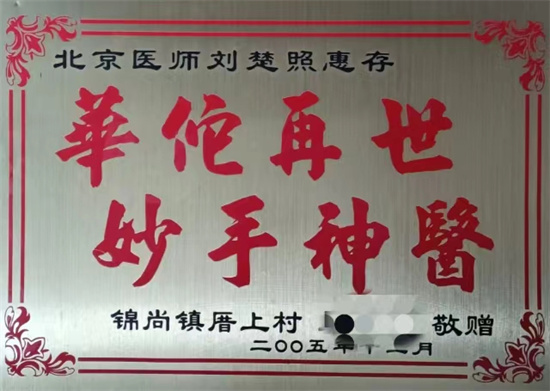 北京医师刘楚照惠存
華佗再世
妙手神醫
锦尚镇厝上村 敬赠
二〇〇五年十二月